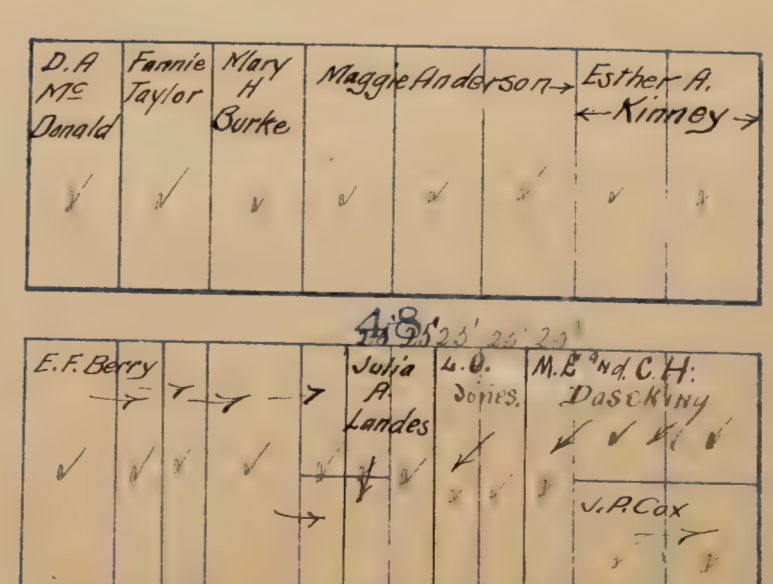 D.A
Mc
Donald
Fannie
Taylor
Mary
H
Burke
Maggie Anderson
Esther A.
Kinney
48
25' 25' 25'
E.F. Berry
Julia
A.
Landes
L.O.
Jones.
M.E and C.H.
J.P. Cox